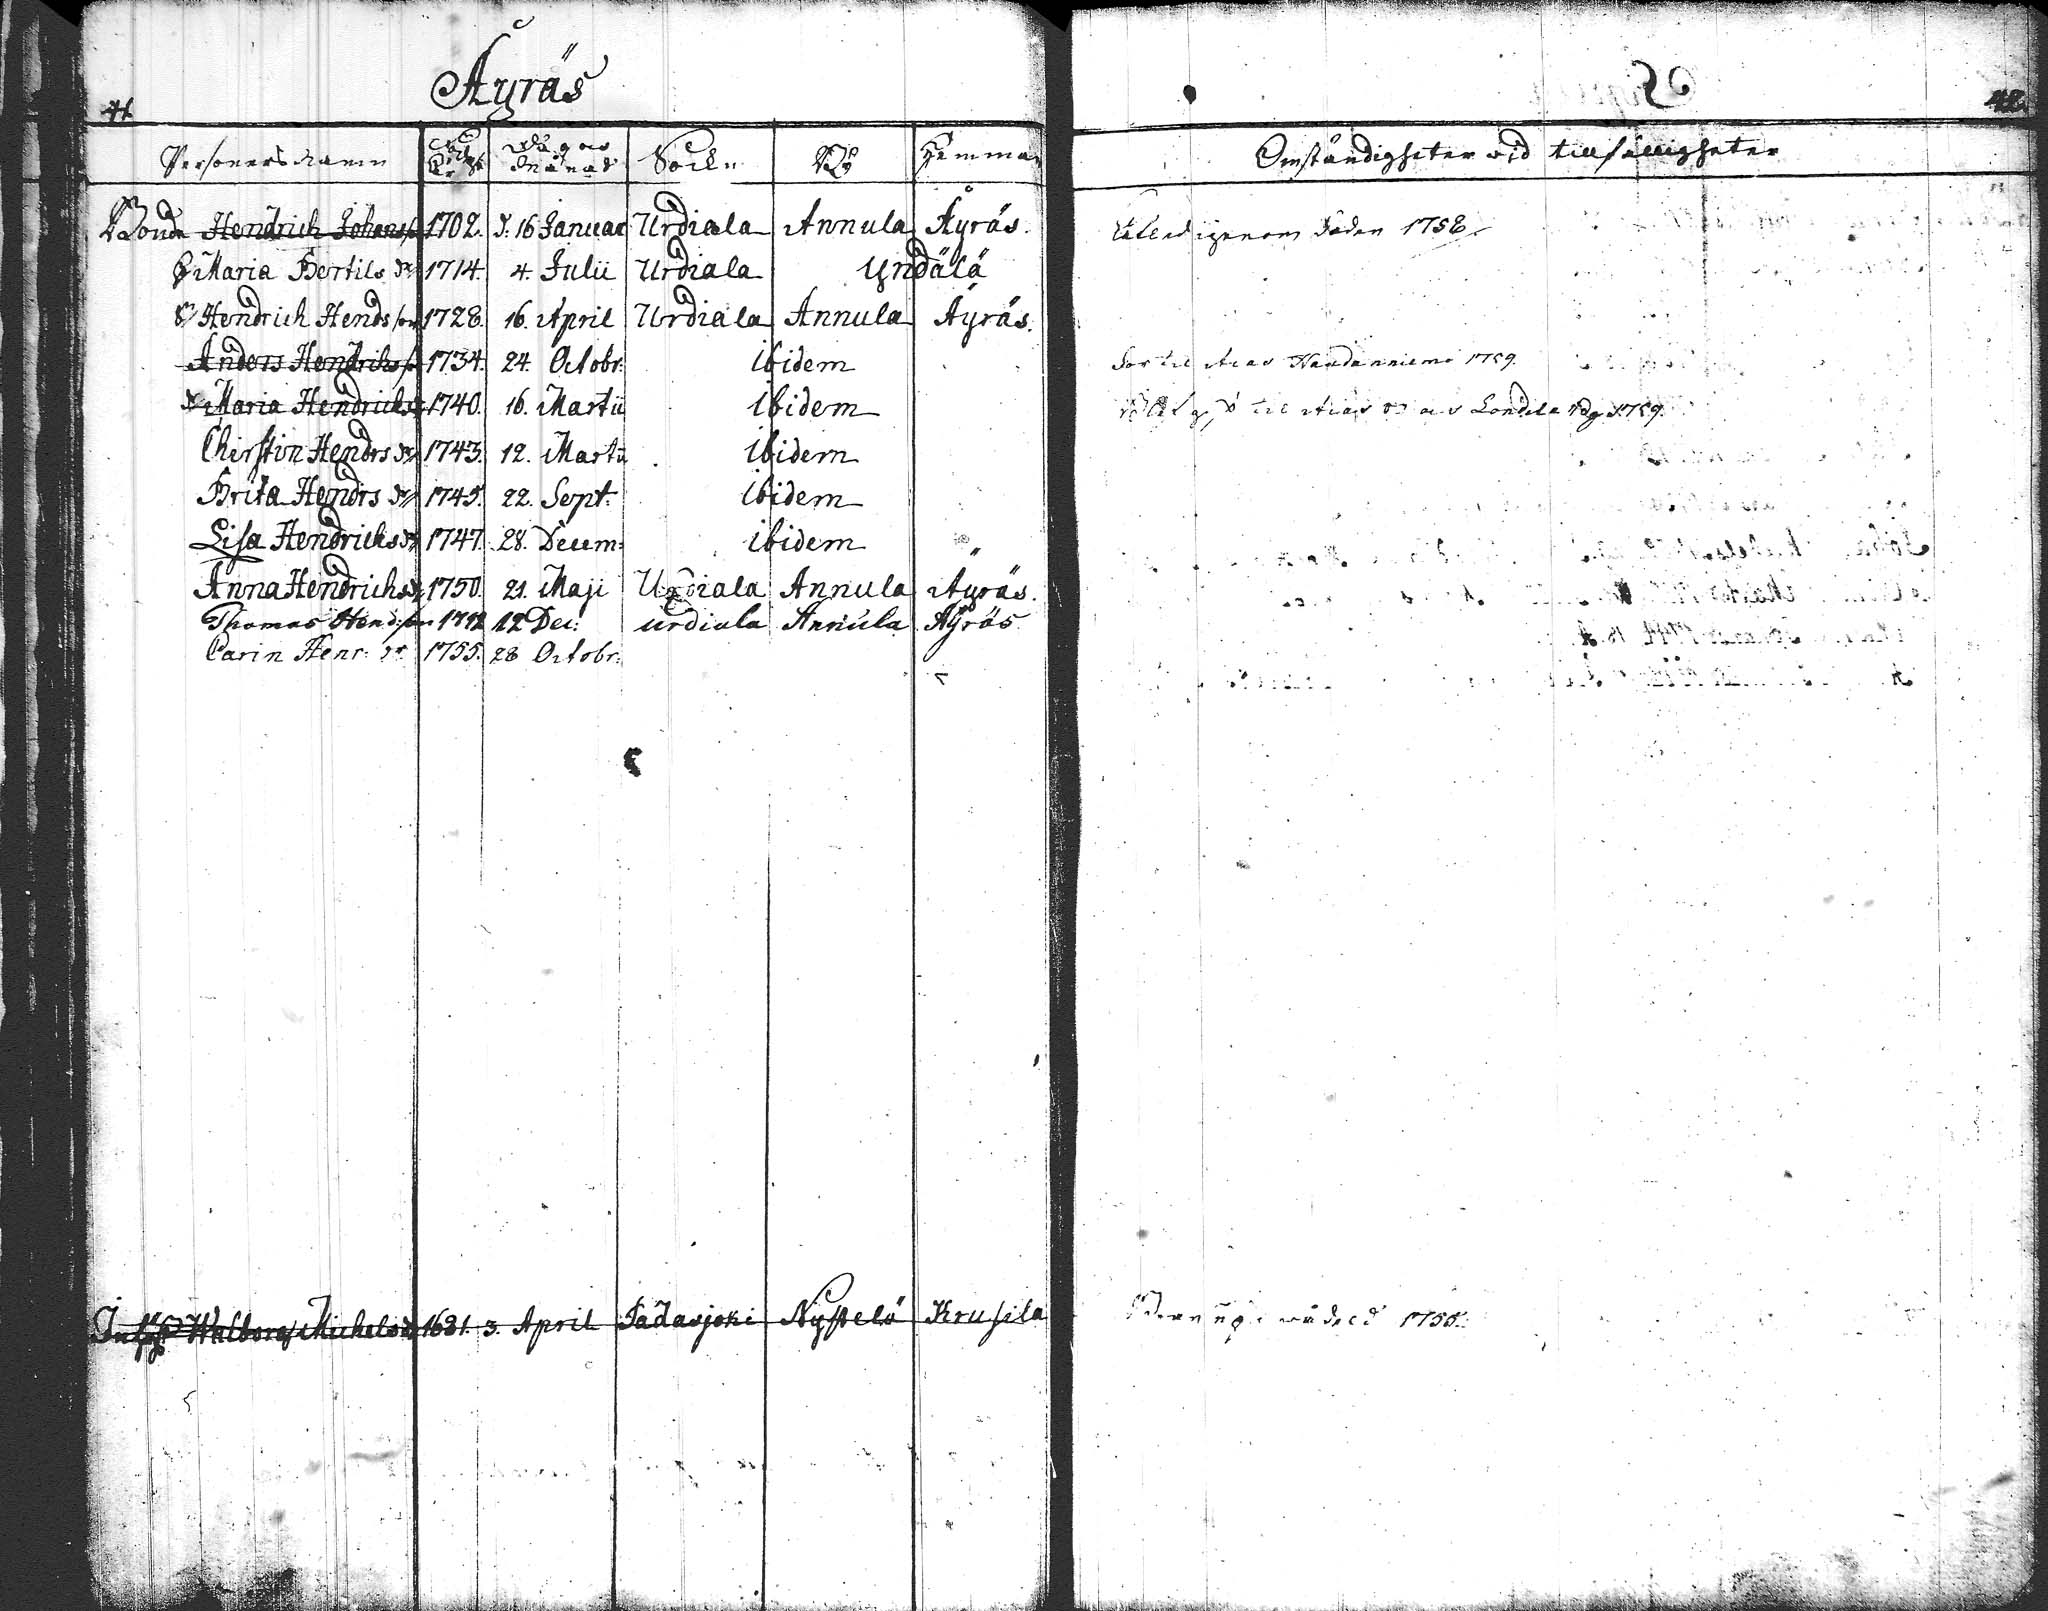 Äyräs
41
Personers namn Dag och Månad Sockn By Hemman
Bonde Hendrich Johans 1702. d. 16 Januar Urdiala Annula Äyräs.
Maria Bertils dr 1714. 4. Julii Urdiala Yndälä
Hendrich Hends son 1728. 16. April Urdiala Annula Äyräs.
Anders Hendrichs 1734. 24. Octobr: ibidem
Maria Hendrichs 1740. 16. Martii ibidem
Cherstin Hendrs dr 1743. 12. Martii ibidem
Brita Hendrs dr 1745. 22. Sept: ibidem
Lisa Hendrichs dr 1747. 28. Decem: ibidem
Anna Hendrichs dr 1750. 21. Maji Urdiala Annula Äyräs.
Thomas Hend: son 12 Dec: Urdiala Annula Äyräs
Carin Henr: dr 1755. 28 Octobr:
Inhys Walborg Michels dr 1681. 3. April Padasjoki Nystelä Krusila
42.
Omständigheter wid tillfälligheter
igenom döden 1758
for til Haudanniemi 1759.
til 1759.
1755.